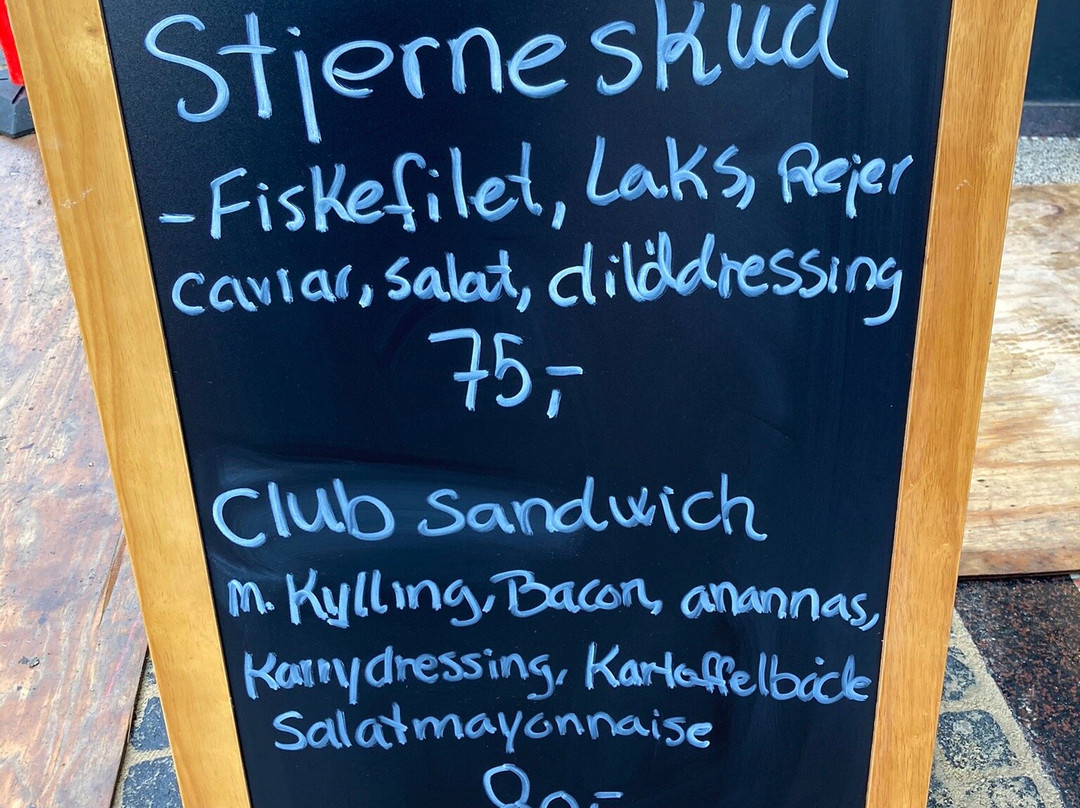 Stjerneskud
-Fiskefilet, Laks, Rejer
caviar, salat, dilddressing
75,-
Club Sandwich
m. Kylling, Bacon, anannas,
Karrydressing, Kartoffelbåde
Salatmayonnaise
80,-